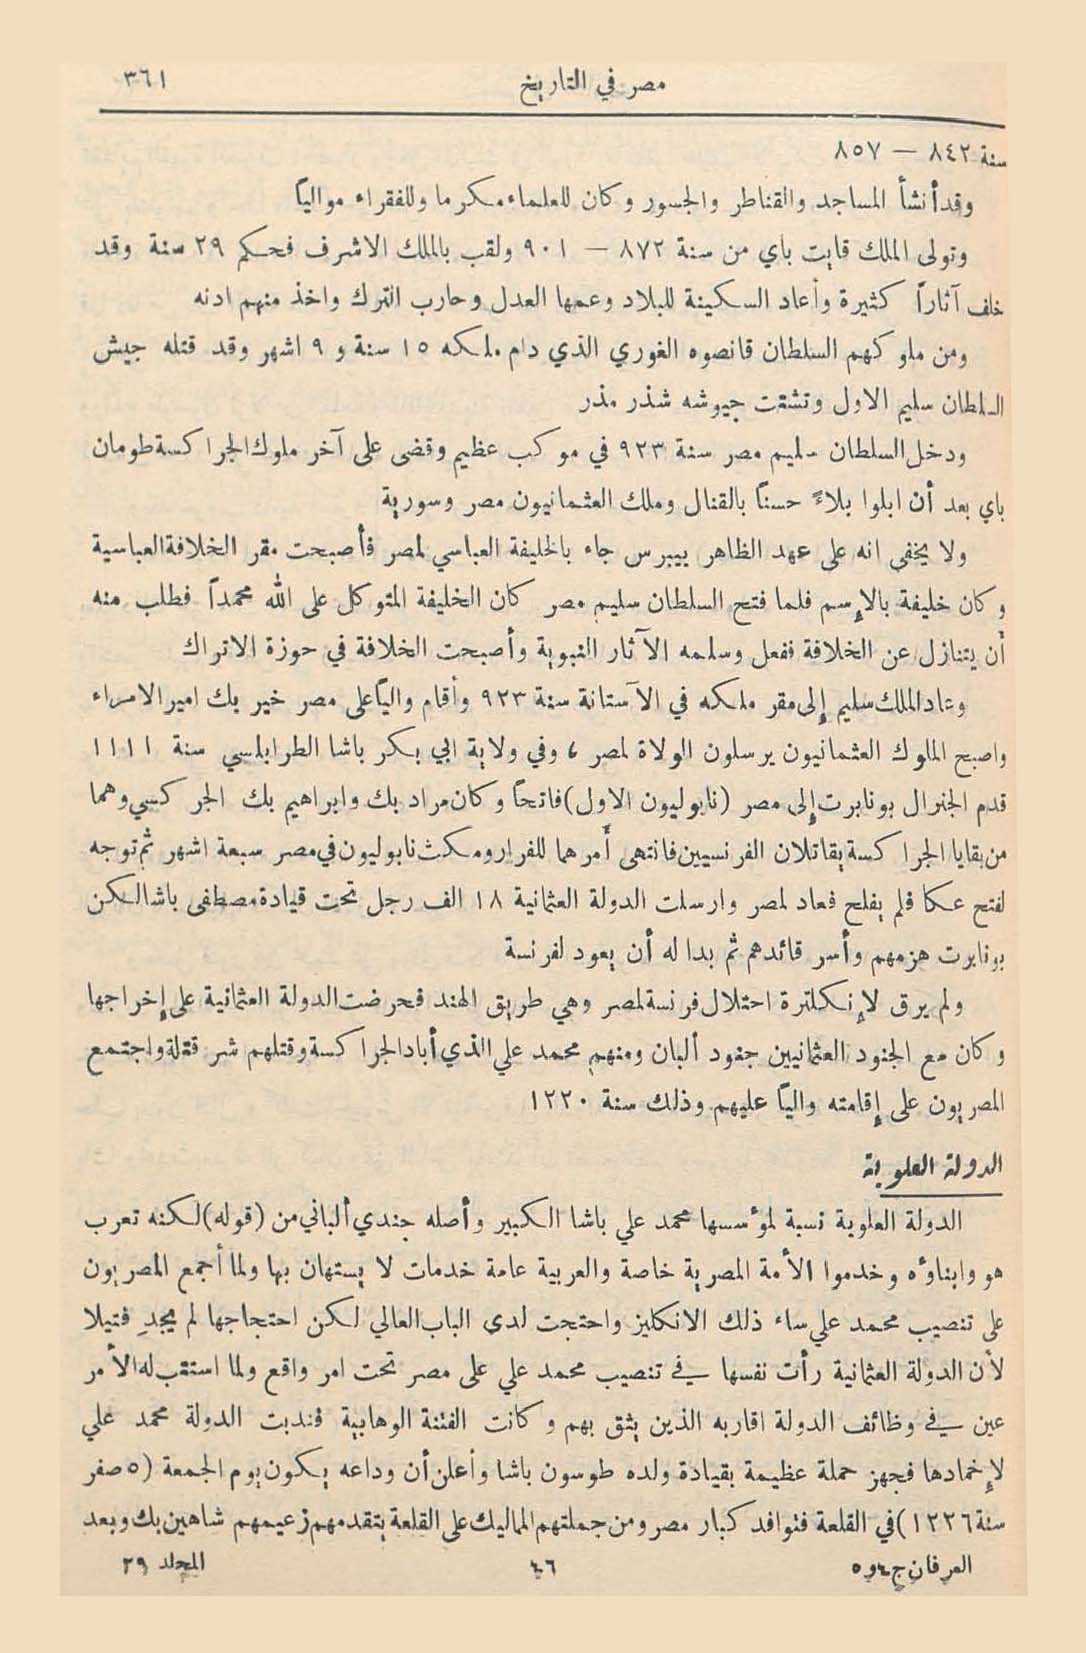 مصر في التاريخ ٣٦١
سنة ٨٤٢ – ٨٥٧
وقد أنشأ المساجد والقناطر والجسور وكان للعلماء مكرما وللفقراء موالياً
وتولى الملك قايت باي من سنة ٨٧٢ – ٩٠١ ولقب بالملك الاشرف فحكم ٢٩ سنة وقد
خلف آثاراً كثيرة وأعاد السكينة للبلاد وعمها العدل وحارب الترك واخذ منهم ادنه
ومن ملوكهم السلطان قانصوه الغوري الذي دام ملكه ١٥ سنة و ٩ اشهر وقد قتله جيش
السلطان سليم الاول وتشتت جيوشه شذر مذر
ودخل السلطان سليم مصر سنة ٩٢٣ في موكب عظيم وقضى على آخر ملوك الجراكسة طومان
باي بعد أن ابلوا بلاءً حسناً بالقتال وملك العثمانيون مصر وسورية
ولا يخفى انه على عهد الظاهر بيبرس جاء بالخليفة العباسي لمصر فأصبحت مقر الخلافة العباسية
وكان خليفة بالإسم فلما فتح السلطان سليم مصر كان الخليفة المتوكل على الله محمداً فطلب منه
أن يتنازل عن الخلافة ففعل وسلمه الآثار النبوية وأصبحت الخلافة في حوزة الاتراك
وعاد الملك سليم إلى مقر ملكه في الآستانة سنة ٩٢٣ وأقام والياً على مصر خير بك امير الامراء
واصبح الملوك العثمانيون يرسلون الولاة لمصر ، وفي ولاية ابي بكر باشا الطرابلسي سنة ١١١١
قدم الجنرال بونابرت إلى مصر (نابوليون الاول) فاتحاً وكان مراد بك وابراهيم بك الجركسي وهما
من بقايا الجراكسة يقاتلان الفرنسيين فانتهى أمرهما للفرار ومكث نابوليون في مصر سبعة اشهر ثم توجه
لفتح عكا فلم يفلح فعاد لمصر وارسلت الدولة العثمانية ١٨ الف رجل تحت قيادة مصطفى باشا لكن
بونابرت هزمهم وأسر قائدهم ثم بدا له أن يعود لفرنسة
ولم يرق لإنكلترة احتلال فرنسة لمصر وهي طريق الهند فحرضت الدولة العثمانية على إخراجها
وكان مع الجنود العثمانيين جنود ألبان ومنهم محمد علي الذي أباد الجراكسة وقتلهم شر قتلة واجتمع
المصريون على إقامته والياً عليهم وذلك سنة ١٢٢٠
الدولة العلوية
الدولة العلوية نسبة لمؤسسها محمد علي باشا الكبير وأصله جندي ألباني من (قوله) لكنه تعرب
هو وابناؤه وخدموا الأمة المصرية خاصة والعربية عامة خدمات لا يستهان بها ولما أجمع المصريون
على تنصيب محمد علي ساء ذلك الانكليز واحتجت لدى الباب العالي لكن احتجاجها لم يجدِ فتيلا
لأن الدولة العثمانية رأت نفسها في تنصيب محمد علي على مصر تحت امر واقع ولما استتب له الأمر
عين في وظائف الدولة اقاربه الذين يثق بهم وكانت الفتنة الوهابية فندبت الدولة محمد علي
لإخمادها فجهز حملة عظيمة بقيادة ولده طوسون باشا وأعلن أن وداعه يكون يوم الجمعة (٥ صفر
سنة ١٢٢٦) في القلعة فتوافد كبار مصر ومن جملتهم المماليك على القلعة يتقدمهم زعيمهم شاهين بك وبعد
العرفان ج٤و٥ ٤٦ المجلد ٢٩